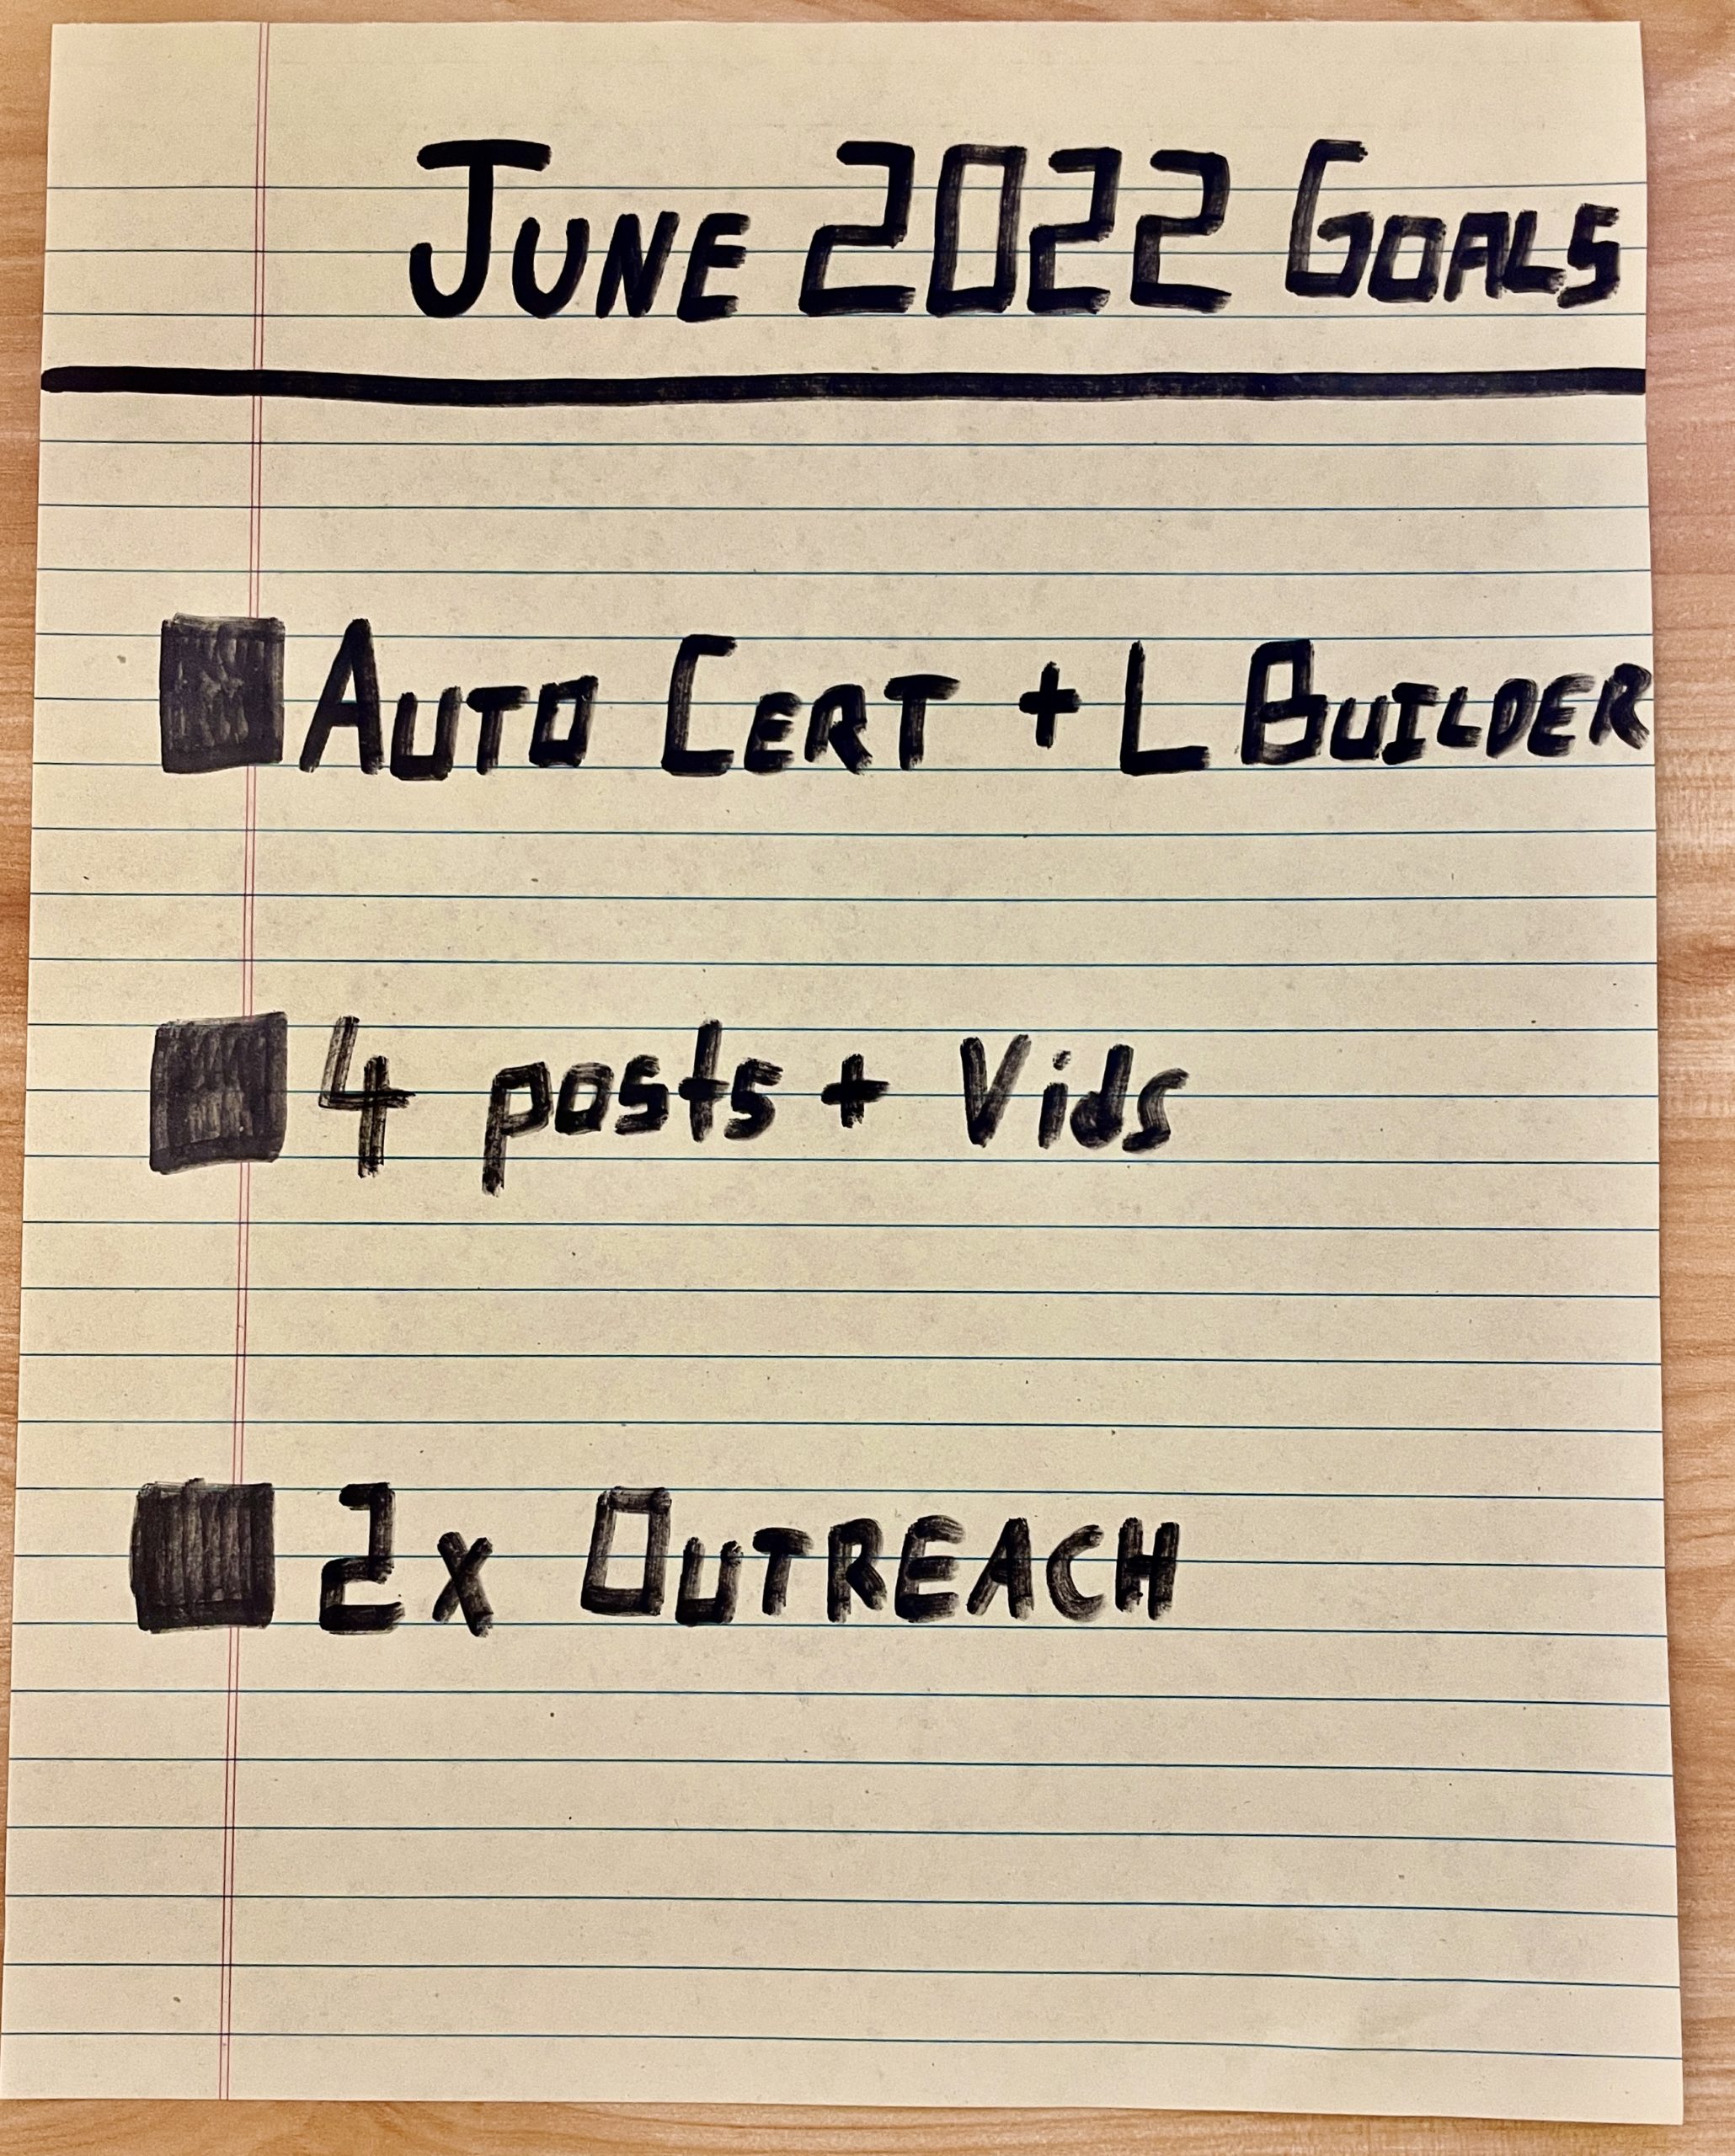 June 2022 Goals
Auto Cert + L Builder
4 posts + Vids
2x Outreach